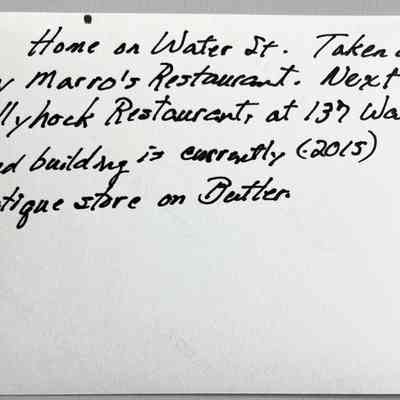 Home on Water St. Taken
Marro's Restaurant. Next
llyhock Restaurant, at 137 Wa
ed building is currently (2015)
tique store on Butler.